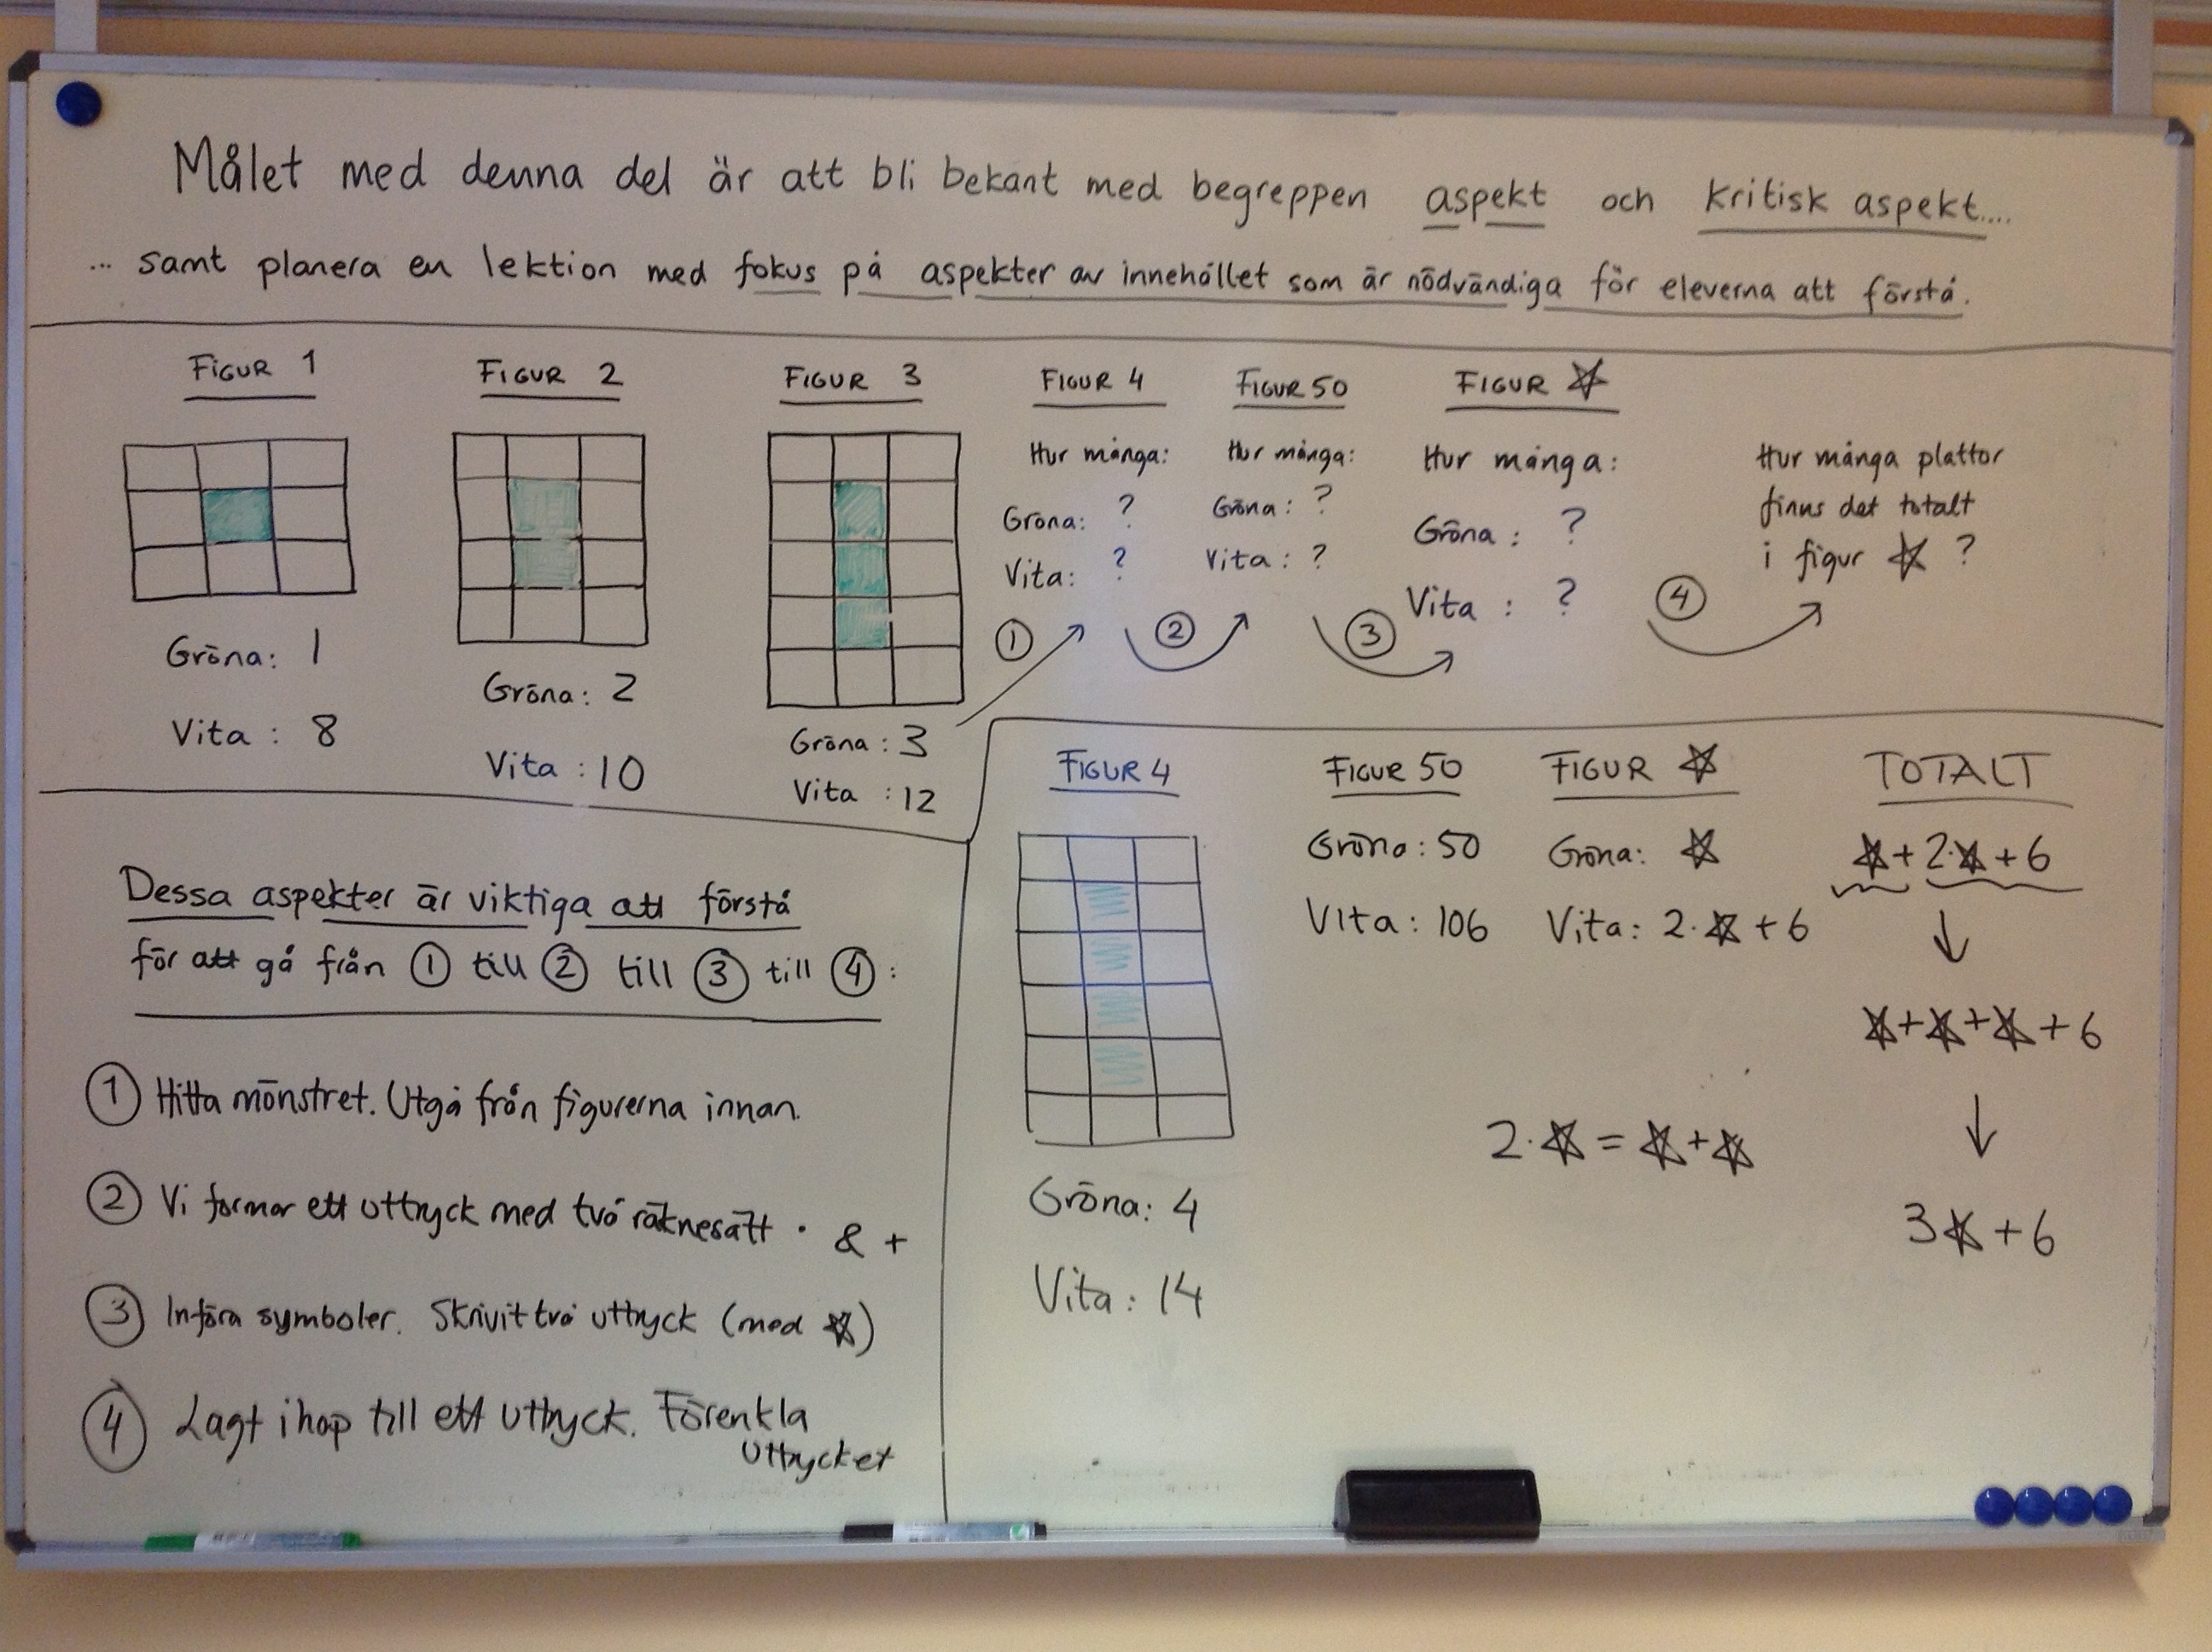 Målet med denna del är att bli bekant med begreppen aspekt och kritisk aspekt....
... samt planera en lektion med fokus på aspekter av innehållet som är nödvändiga för eleverna att förstå.
FIGUR 1
Gröna: 1
Vita: 8
FIGUR 2
Gröna: 2
Vita: 10
FIGUR 3
Gröna: 3
Vita: 12
FIGUR 4
Hur många:
Gröna: ?
Vita: ?
①
FIGUR 50
Hur många:
Gröna: ?
Vita: ?
②
FIGUR ☆
Hur många:
Gröna: ?
Vita: ?
③
④
Hur många plattor
finns det totalt
i figur ☆ ?
Dessa aspekter är viktiga att förstå
för att gå från ① till ② till ③ till ④:
① Hitta mönstret. Utgå från figurerna innan.
② Vi formar ett uttryck med två räknesätt · & +
③ Införa symboler. Skrivit två uttryck (med ☆)
④ Lagt ihop till ett uttryck. Förenkla
uttrycket
FIGUR 4
Gröna: 4
Vita: 14
FIGUR 50
Gröna: 50
Vita: 106
FIGUR ☆
Gröna: ☆
Vita: 2·☆+6
2·☆=☆+☆
TOTALT
☆+2·☆+6
↓
☆+☆+☆+6
↓
3☆+6